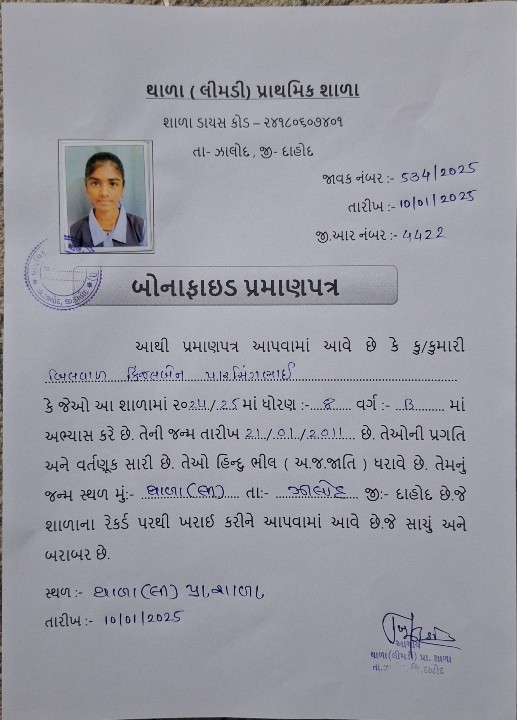 થાળા ( લીમડી) પ્રાથમિક શાળા
શાળા ડાયસ કોડ – ૨૪૧૮૦૬૦૭૪૦૧
તા- ઝાલોદ , જી- દાહોદ
જાવક નંબર :- 534/2025
તારીખ :- 10/01/2025
જી.આર નંબર :- 4422
બોનાફાઇડ પ્રમાણપત્ર
આથી પ્રમાણપત્ર આપવામાં આવે છે કે કુ/કુમારી
બિલવાળ કિંજલબેન પારસિંગભાઈ
કે જેઓ આ શાળામાં ૨૦24/25 માં ધોરણ :- 8 વર્ગ :- B માં
અભ્યાસ કરે છે. તેની જન્મ તારીખ 21/01/2011 છે. તેઓની પ્રગતિ
અને વર્તણૂક સારી છે. તેઓ હિન્દુ ભીલ ( અ.જ.જાતિ ) ધરાવે છે. તેમનું
જન્મ સ્થળ મું:- થાળા(લી) તા:- ઝાલોદ જી:- દાહોદ છે.જે
શાળાના રેકર્ડ પરથી ખરાઈ કરીને આપવામાં આવે છે.જે સાચું અને
બરાબર છે.
સ્થળ :- થાળા(લી) પ્રા.શાળા
તારીખ :- 10/01/2025
આચાર્ય
થાળા(લીમડી) પ્રા. શાળા
તા. જિ.દાહોદ